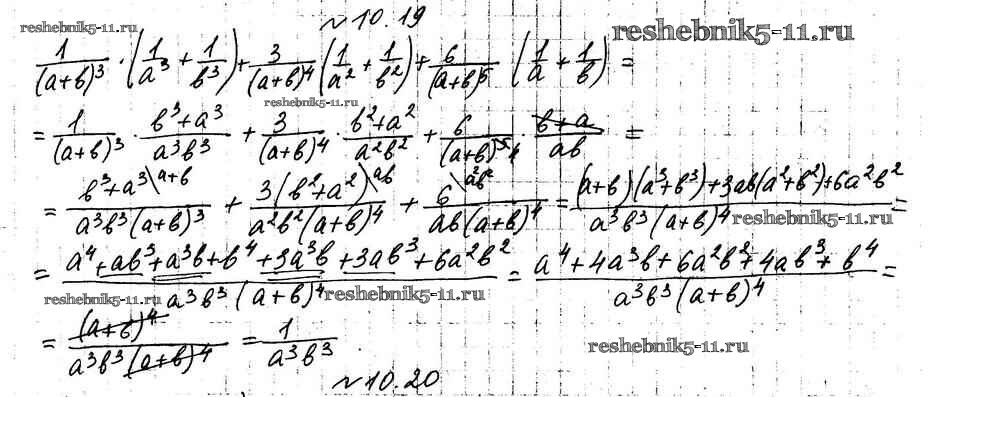 №10.19
reshebnik5-11.ru
reshebnik5-11.ru
1/(a+b)³ · (1/a³ + 1/b³) + 3/(a+b)⁴ (1/a² + 1/b²) + 6/(a+b)⁵ (1/a + 1/b) =
reshebnik5-11.ru
= 1/(a+b)³ · (b³+a³)/(a³b³) + 3/(a+b)⁴ · (b²+a²)/(a²b²) + 6/(a+b)⁵ ⁴ · (b+a)/(ab) =
= (b³+a³\a+b)/(a³b³(a+b)³) + (3(b²+a²)\ab)/(a²b²(a+b)⁴) + (6\a²b²)/(ab(a+b)⁴) = ((a+b)(a³+b³)+3ab(a²+b²)+6a²b²)/(a³b³(a+b)⁴) =
reshebnik5-11.ru
= (a⁴+ab³+a³b+b⁴+3a³b+3ab³+6a²b²)/(a³b³(a+b)⁴) = (a⁴+4a³b+6a²b²+4ab³+b⁴)/(a³b³(a+b)⁴) =
reshebnik5-11.ru
reshebnik5-11.ru
= (a+b)⁴/(a³b³(a+b)⁴) = 1/(a³b³)
reshebnik5-11.ru
№10.20